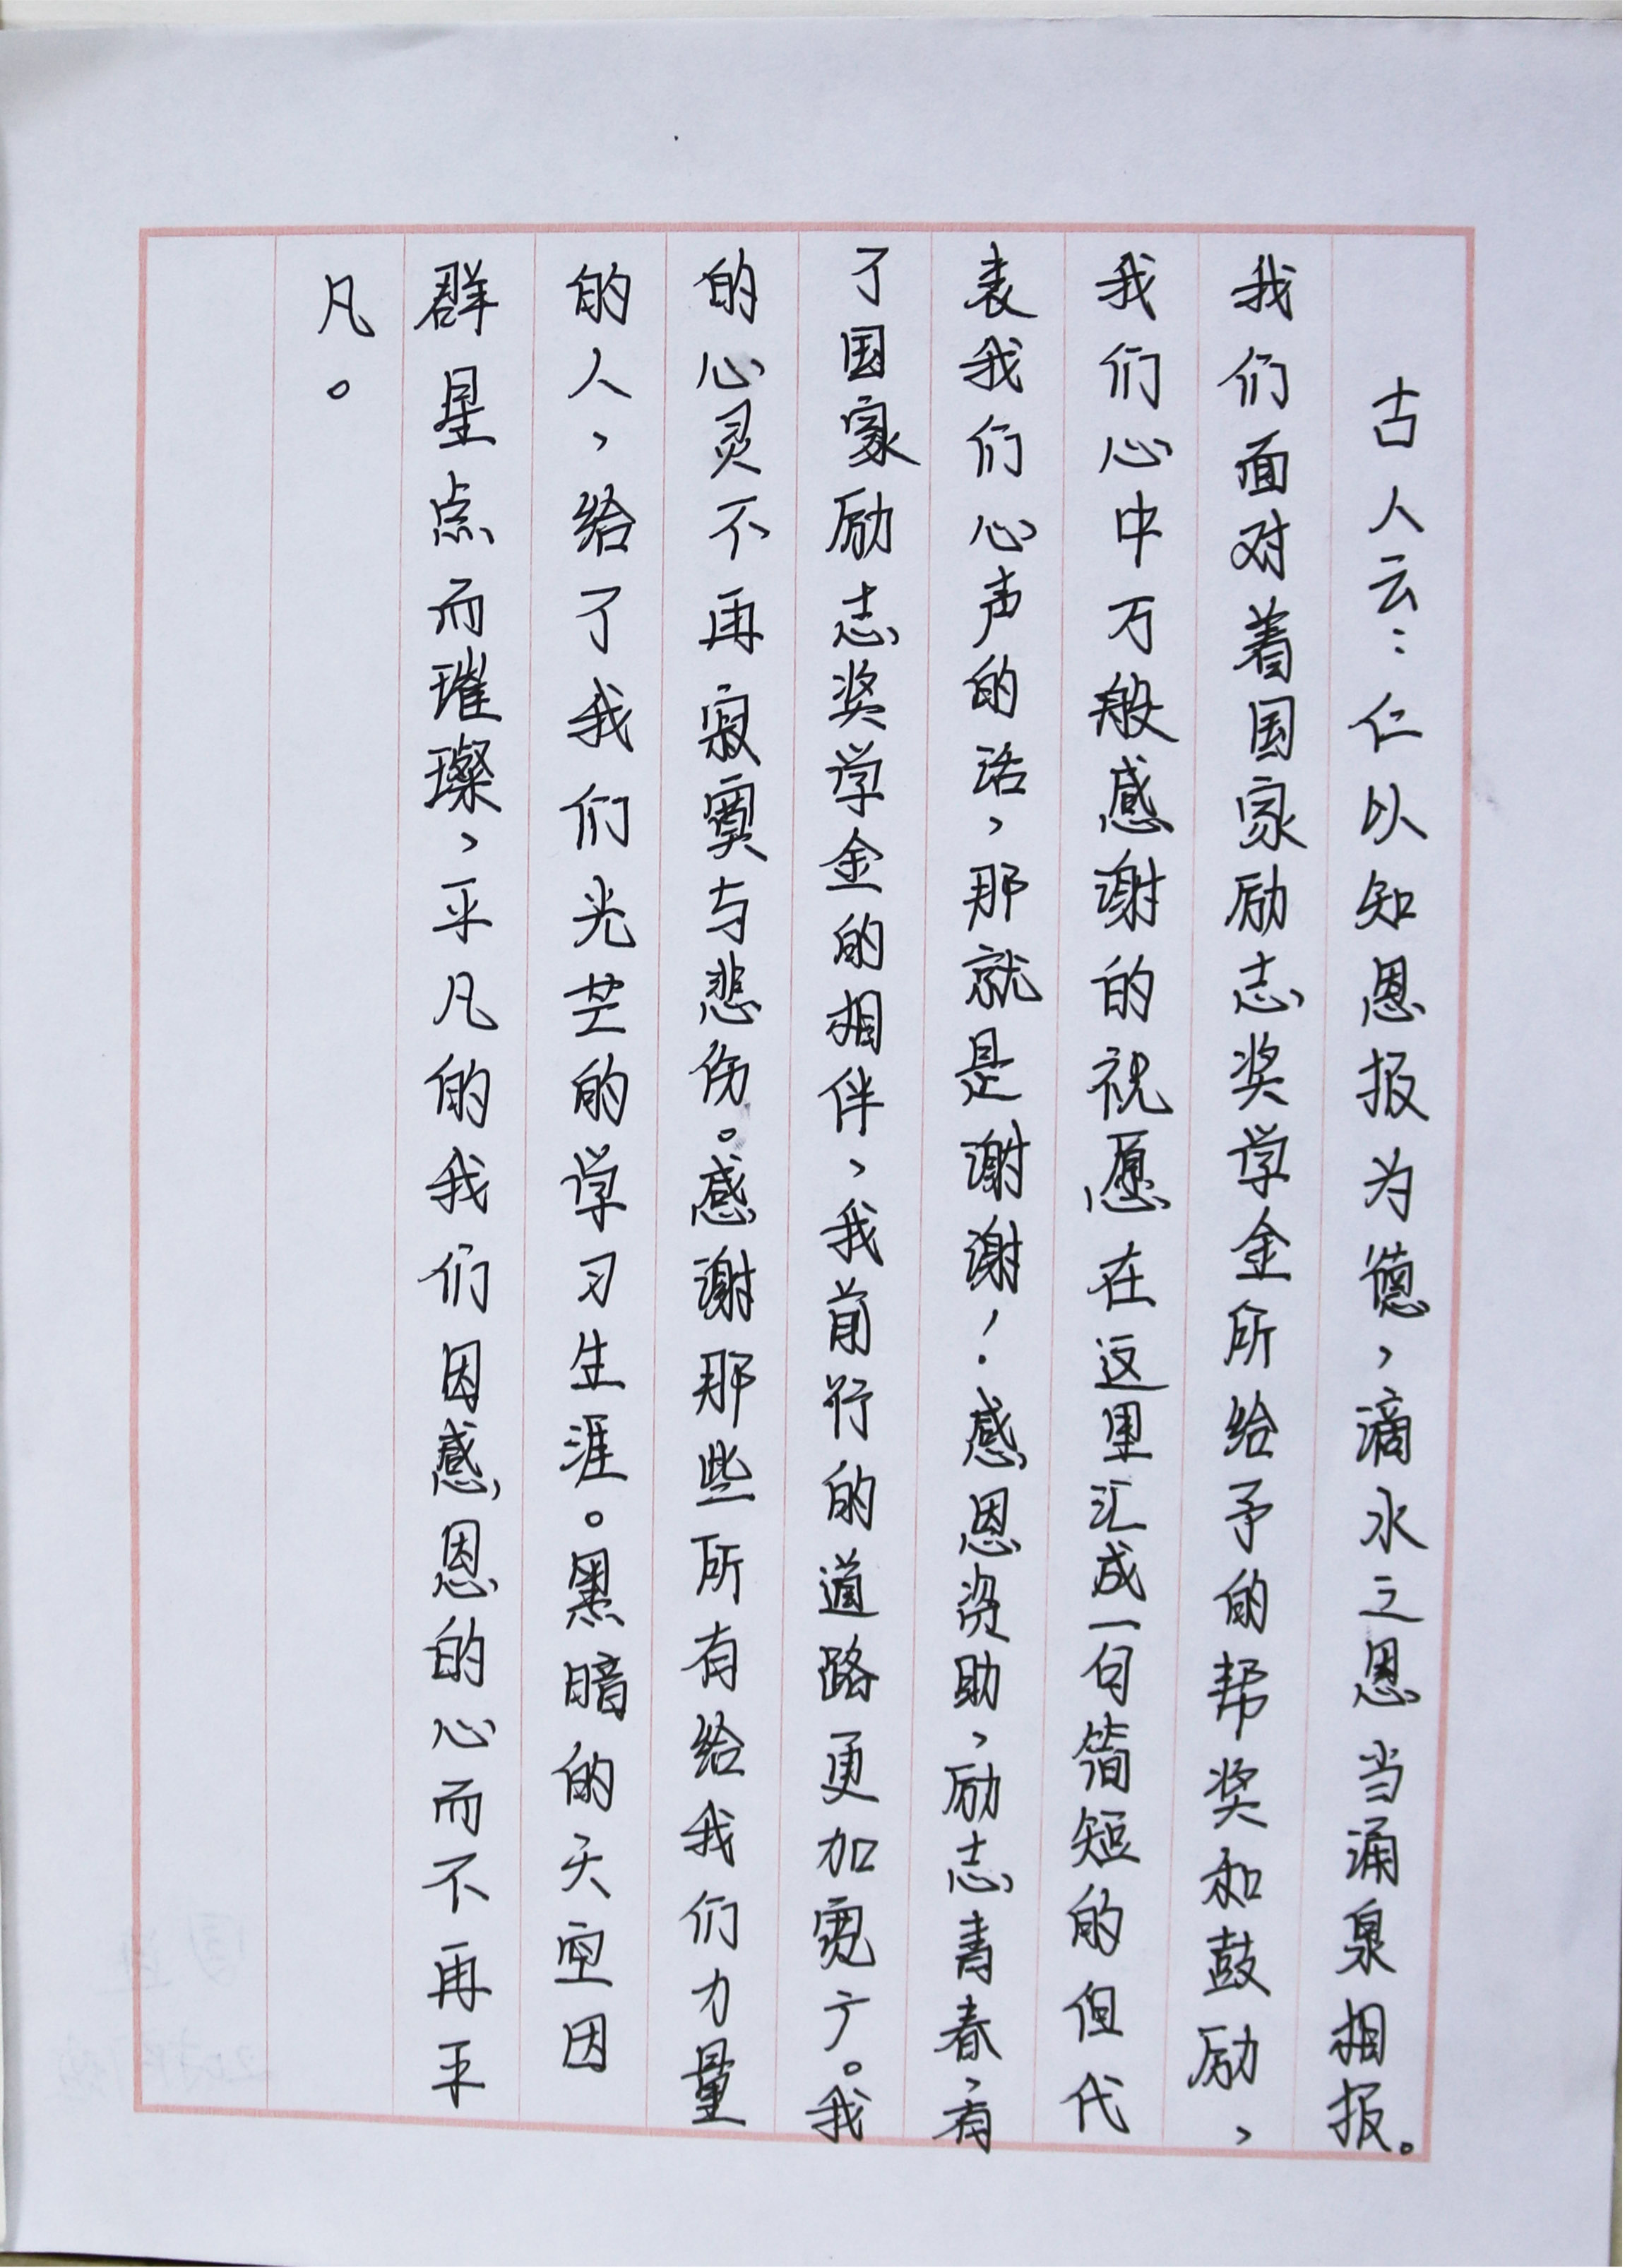 古人云：仁以知恩报为德，滴水之恩当涌泉相报。
我们面对着国家励志奖学金所给予的帮奖和鼓励，
我们心中万般感谢的祝愿在这里汇成一句简短的但代
表我们心声的话，那就是谢谢！感恩资助，励志青春，有
了国家励志奖学金的相伴，我前行的道路更加宽广。我
的心灵不再寂寞与悲伤。感谢那些所有给我们力量
的人，给了我们光芒的学习生涯。黑暗的天空因
群星点而璀璨，平凡的我们因感恩的心而不再平
凡。